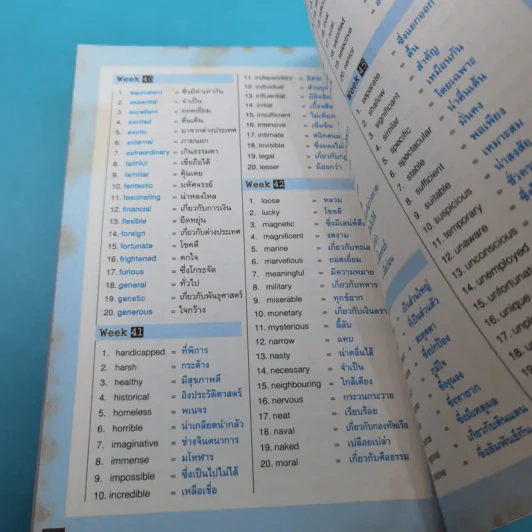 Week 40
1. equivalent = ซึ่งมีค่าเท่ากัน
2. essential = จำเป็น
3. excellent = ยอดเยี่ยม
4. excited = ตื่นเต้น
5. exotic = มาจากต่างประเทศ
6. external = ภายนอก
7. extraordinary = เกินธรรมดา
8. faithful = เชื่อถือได้
9. familiar = คุ้นเคย
10. fantastic = มหัศจรรย์
11. fascinating = น่าหลงใหล
12. financial = เกี่ยวกับการเงิน
13. flexible = ยืดหยุ่น
14. foreign = เกี่ยวกับต่างประเทศ
15. fortunate = โชคดี
16. frightened = ตกใจ
17. furious = ซึ่งโกรธจัด
18. general = ทั่วไป
19. genetic = เกี่ยวกับพันธุศาสตร์
20. generous = ใจกว้าง
Week 41
1. handicapped = ที่พิการ
2. harsh = กระด้าง
3. healthy = มีสุขภาพดี
4. historical = อิงประวัติศาสตร์
5. homeless = พเนจร
6. horrible = น่าเกลียดน่ากลัว
7. imaginative = ช่างจินตนาการ
8. immense = มโหฬาร
9. impossible = ซึ่งเป็นไปไม่ได้
10. incredible = เหลือเชื่อ
11. independent = อิสระ
12. individual =
13. influential =
14. initial = เบื้องต้น
15. insufficient = ไม่เพียงพอ
16. intensive = เข้มข้น
17. intimate = สนิทสนม
18. invisible = ซึ่งมองไม่
19. legal =
20. lesser = น้อยกว่า
Week 42
1. loose = หลวม
2. lucky = โชคดี
3. magnetic =
4. magnificent = งดงาม
5. marine = เกี่ยวกับทะเล
6. marvellous = ยอดเยี่ยม
7. meaningful = มีความหมาย
8. military = เกี่ยวกับทหาร
9. miserable = ทุกข์ยาก
10. monetary = เกี่ยวกับเงินตรา
11. mysterious = ลี้ลับ
12. narrow = แคบ
13. nasty = น่าคลื่นไส้
14. necessary = จำเป็น
15. neighbouring = ใกล้เคียง
16. nervous = กระวนกระวาย
17. neat = เรียบร้อย
18. naval = เกี่ยวกับกองทัพเรือ
19. naked = เปลือยเปล่า
20. moral = เกี่ยวกับศีลธรรม
19. selective
Week 45
1. separate
2. shallow = ตื้น
3. significant = สำคัญ
4. similar = เหมือนกัน
5. specific = โดยเฉพาะ
6. spectacular = น่าตื่นเต้น
7. stable = มั่นคง
8. sufficient = พอเพียง
9. suitable = เหมาะสม
10. suspicious = น่าสงสัย
11. temporary
12. unaware
13. unconscious
14. unemployed
15. unfortunate